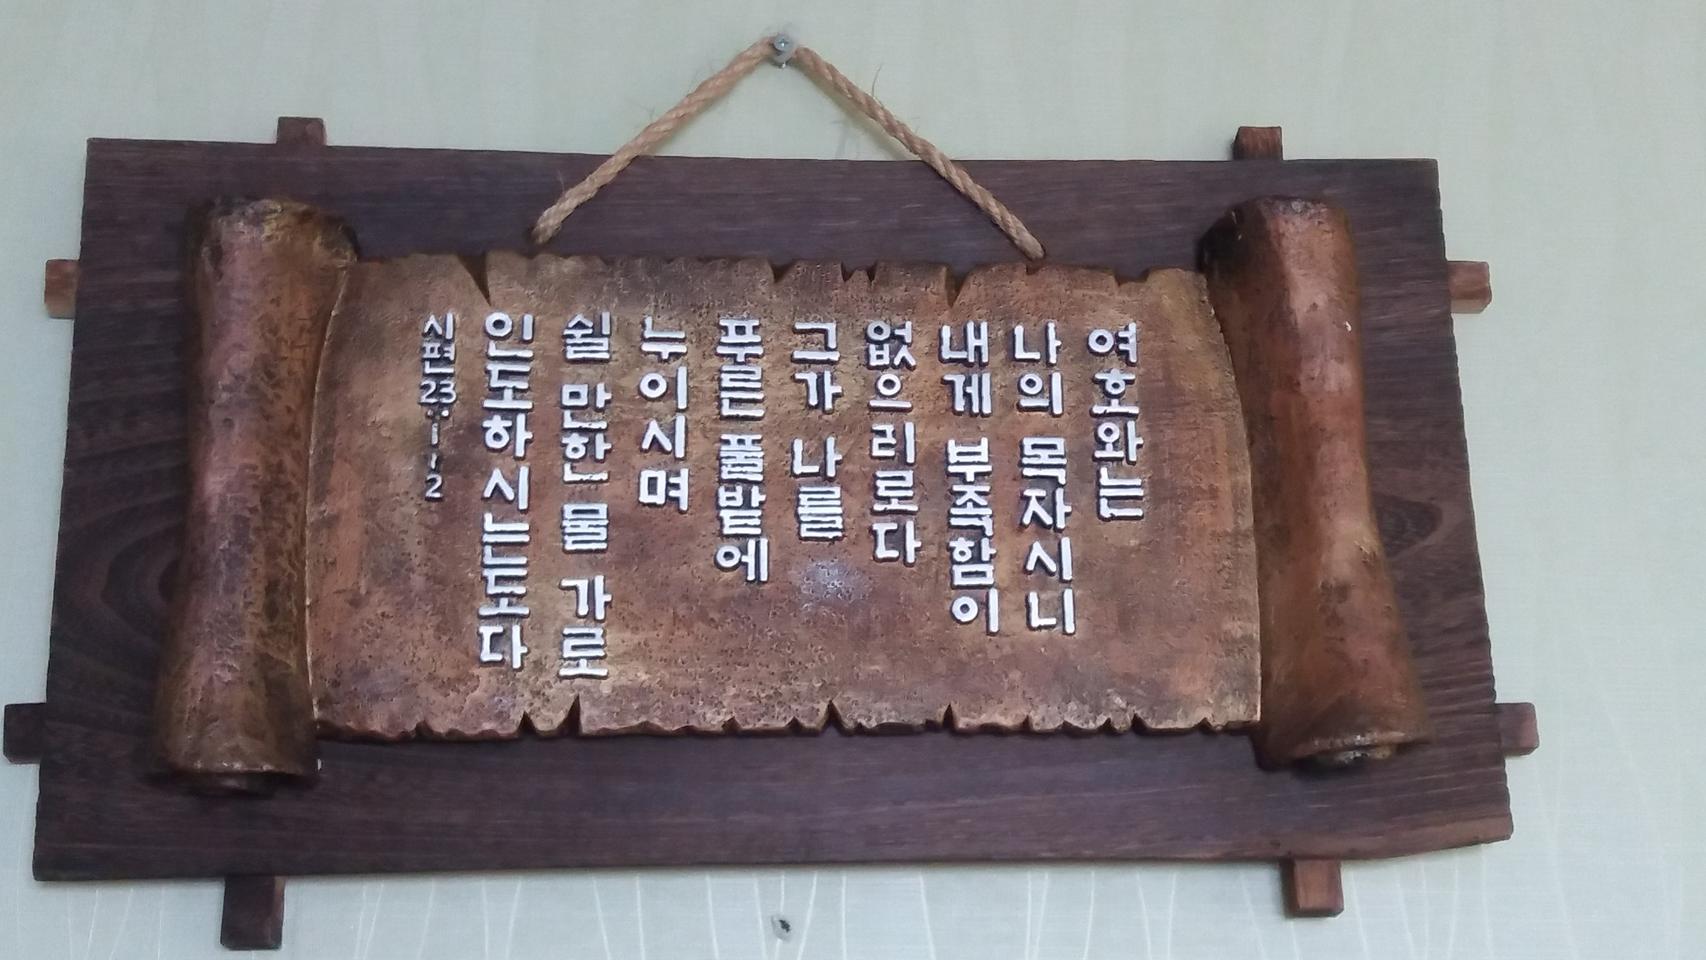 여호와는
나의 목자시니
내게 부족함이
없으리로다
그가 나를
푸른 풀밭에
누이시며
쉴 만한 물 가로
인도하시는도다
시편23:1,2